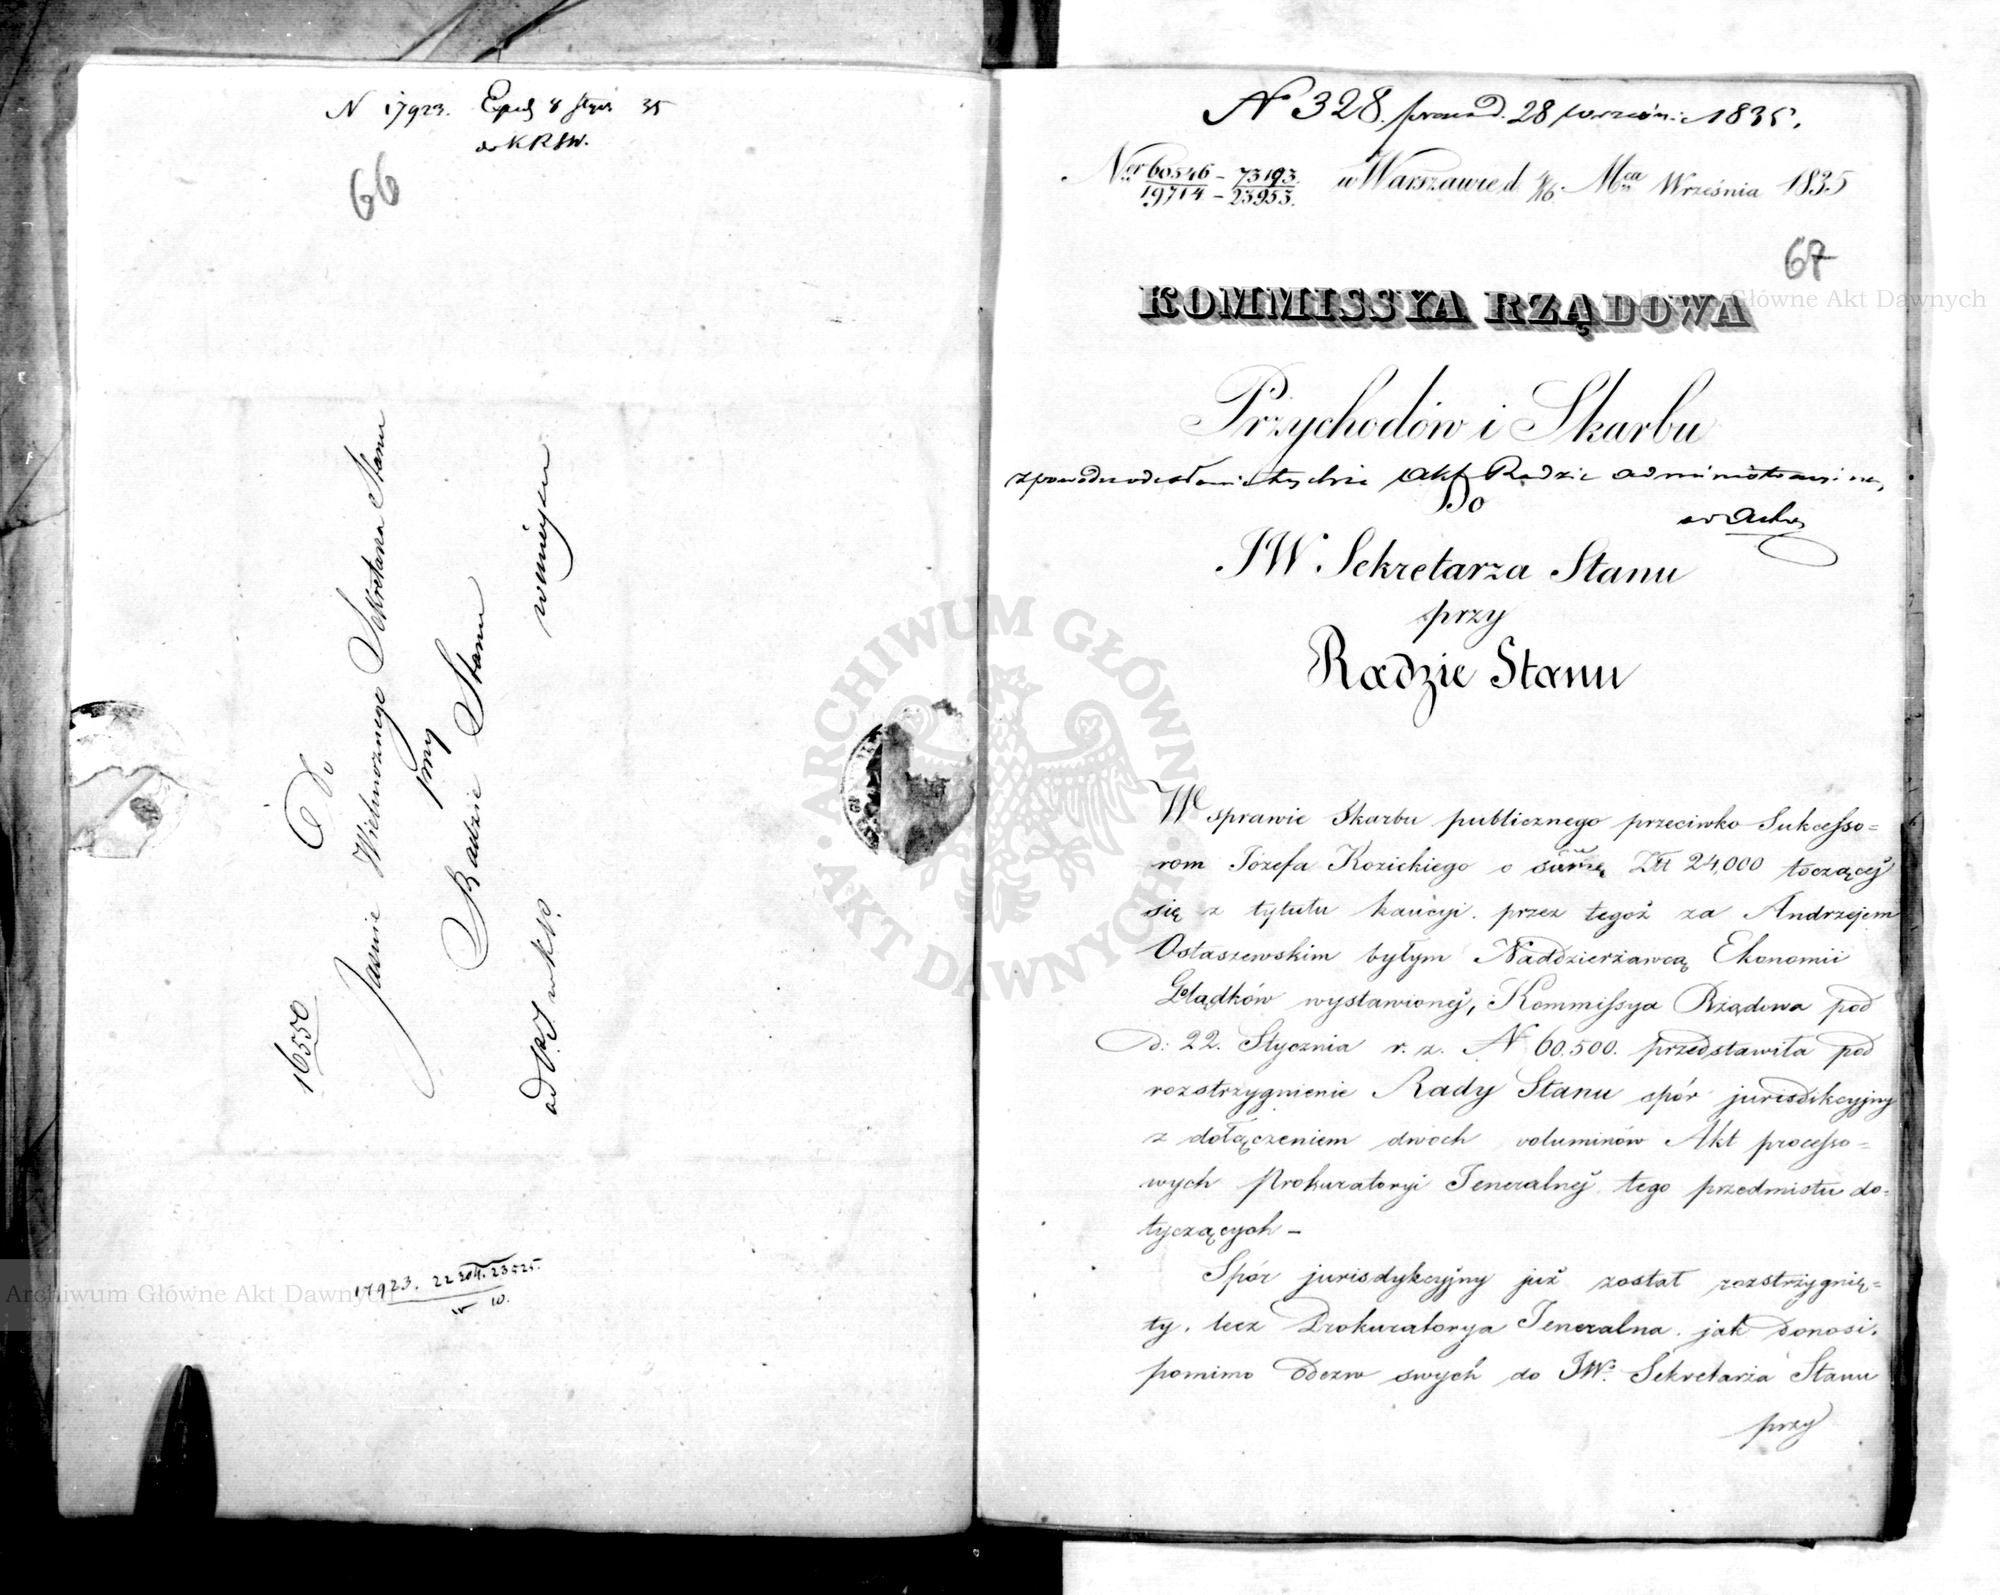 N 17923.
do KRSW.
66
16550
Do
Jaśnie Wielmożnego Sekretarza Stanu
przy
Radzie Stanu
17923. 22204. 23525.
10.
N 328. 28 wrześn: 1835.
Ner 60546 – 73193. w Warszawie d. 4/16. Mca Września 1835
19714 – 23953.
67
KOMMISSYA RZĄDOWA
Przychodów i Skarbu
z powodu odesłania tychże akt Radzie Administracyjnej,
Do
ad Acta
JW Sekretarza Stanu
przy
Radzie Stanu
W sprawie Skarbu publicznego przeciwko Sukcesso=
rom Józefa Kozickiego o summę Złt 24,000 toczącej
się z tytułu kaucyi. przez tegoż za Andrzejem
Ostaszewskim byłym Naddzierżawcą Ekonomii
Gładków wystawionej, Kommissya Rządowa pod
d: 22. Stycznia r. z. N 60.500. przedstawiła pod
rozstrzygnienie Rady Stanu spór jurisdikcyjny
z dołączeniem dwóch voluminów Akt processo=
wych Prokuratoryi Jeneralnej tego przedmiotu do=
tyczących –
Spór jurisdykcyjny już został rozstrzygnię=
ty, lecz Prokuratorya Jeneralna. jak donosi,
pomimo Odezw swych do JW. Sekretarza Stanu
przy
ARCHIWUM GŁÓWNE AKT DAWNYCH
Archiwum Główne Akt Dawnych
Archiwum Główne Akt Dawnych